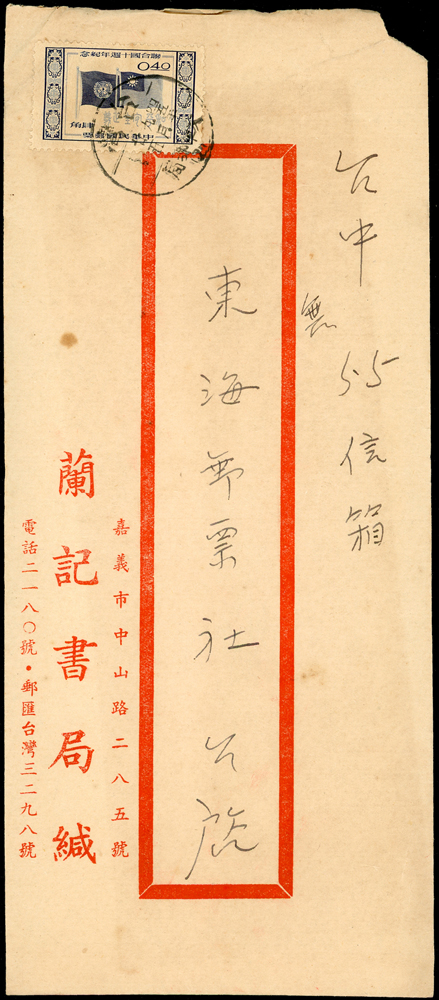 台中
55信箱
東海郵票社 啟
嘉義市中山路二八五號
蘭記書局緘
電話二一八〇號・郵匯台灣三二九八號
聯合國十週年紀念
040